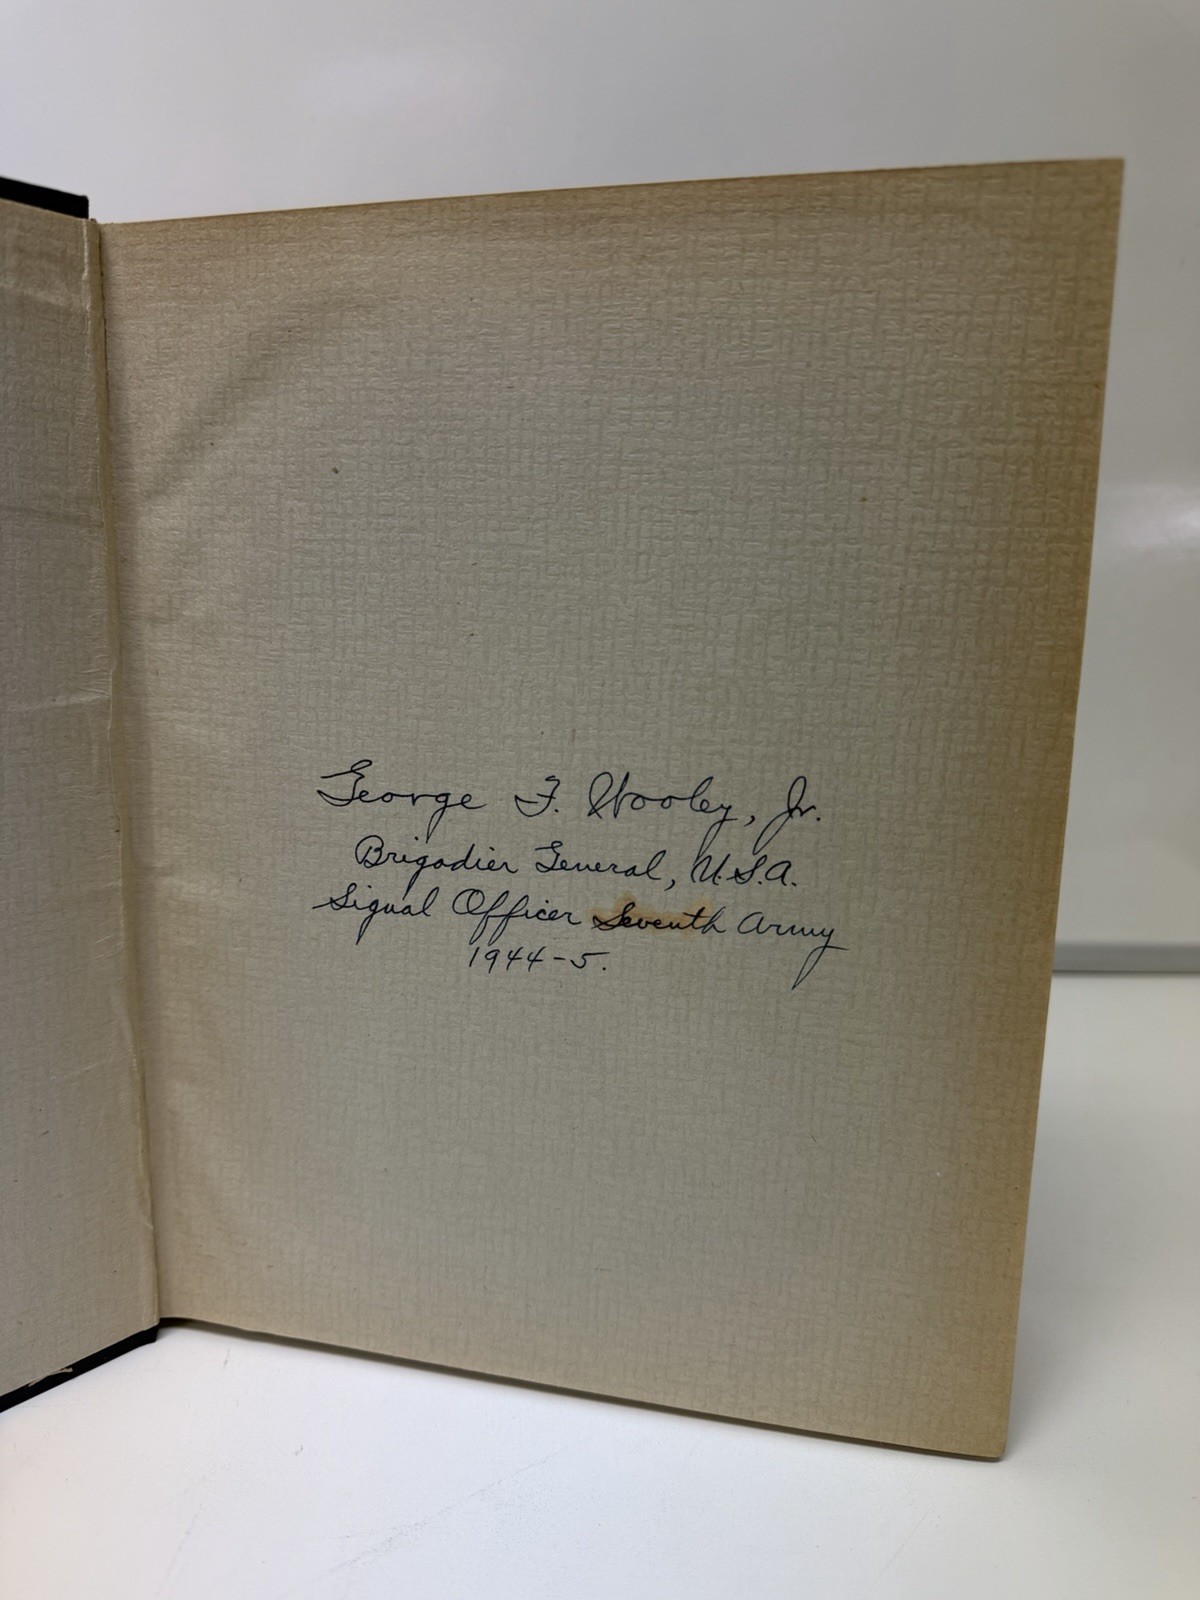 George F. Wooley, Jr.
Brigadier General, U.S.A.
Signal Officer Seventh Army
1944-5.